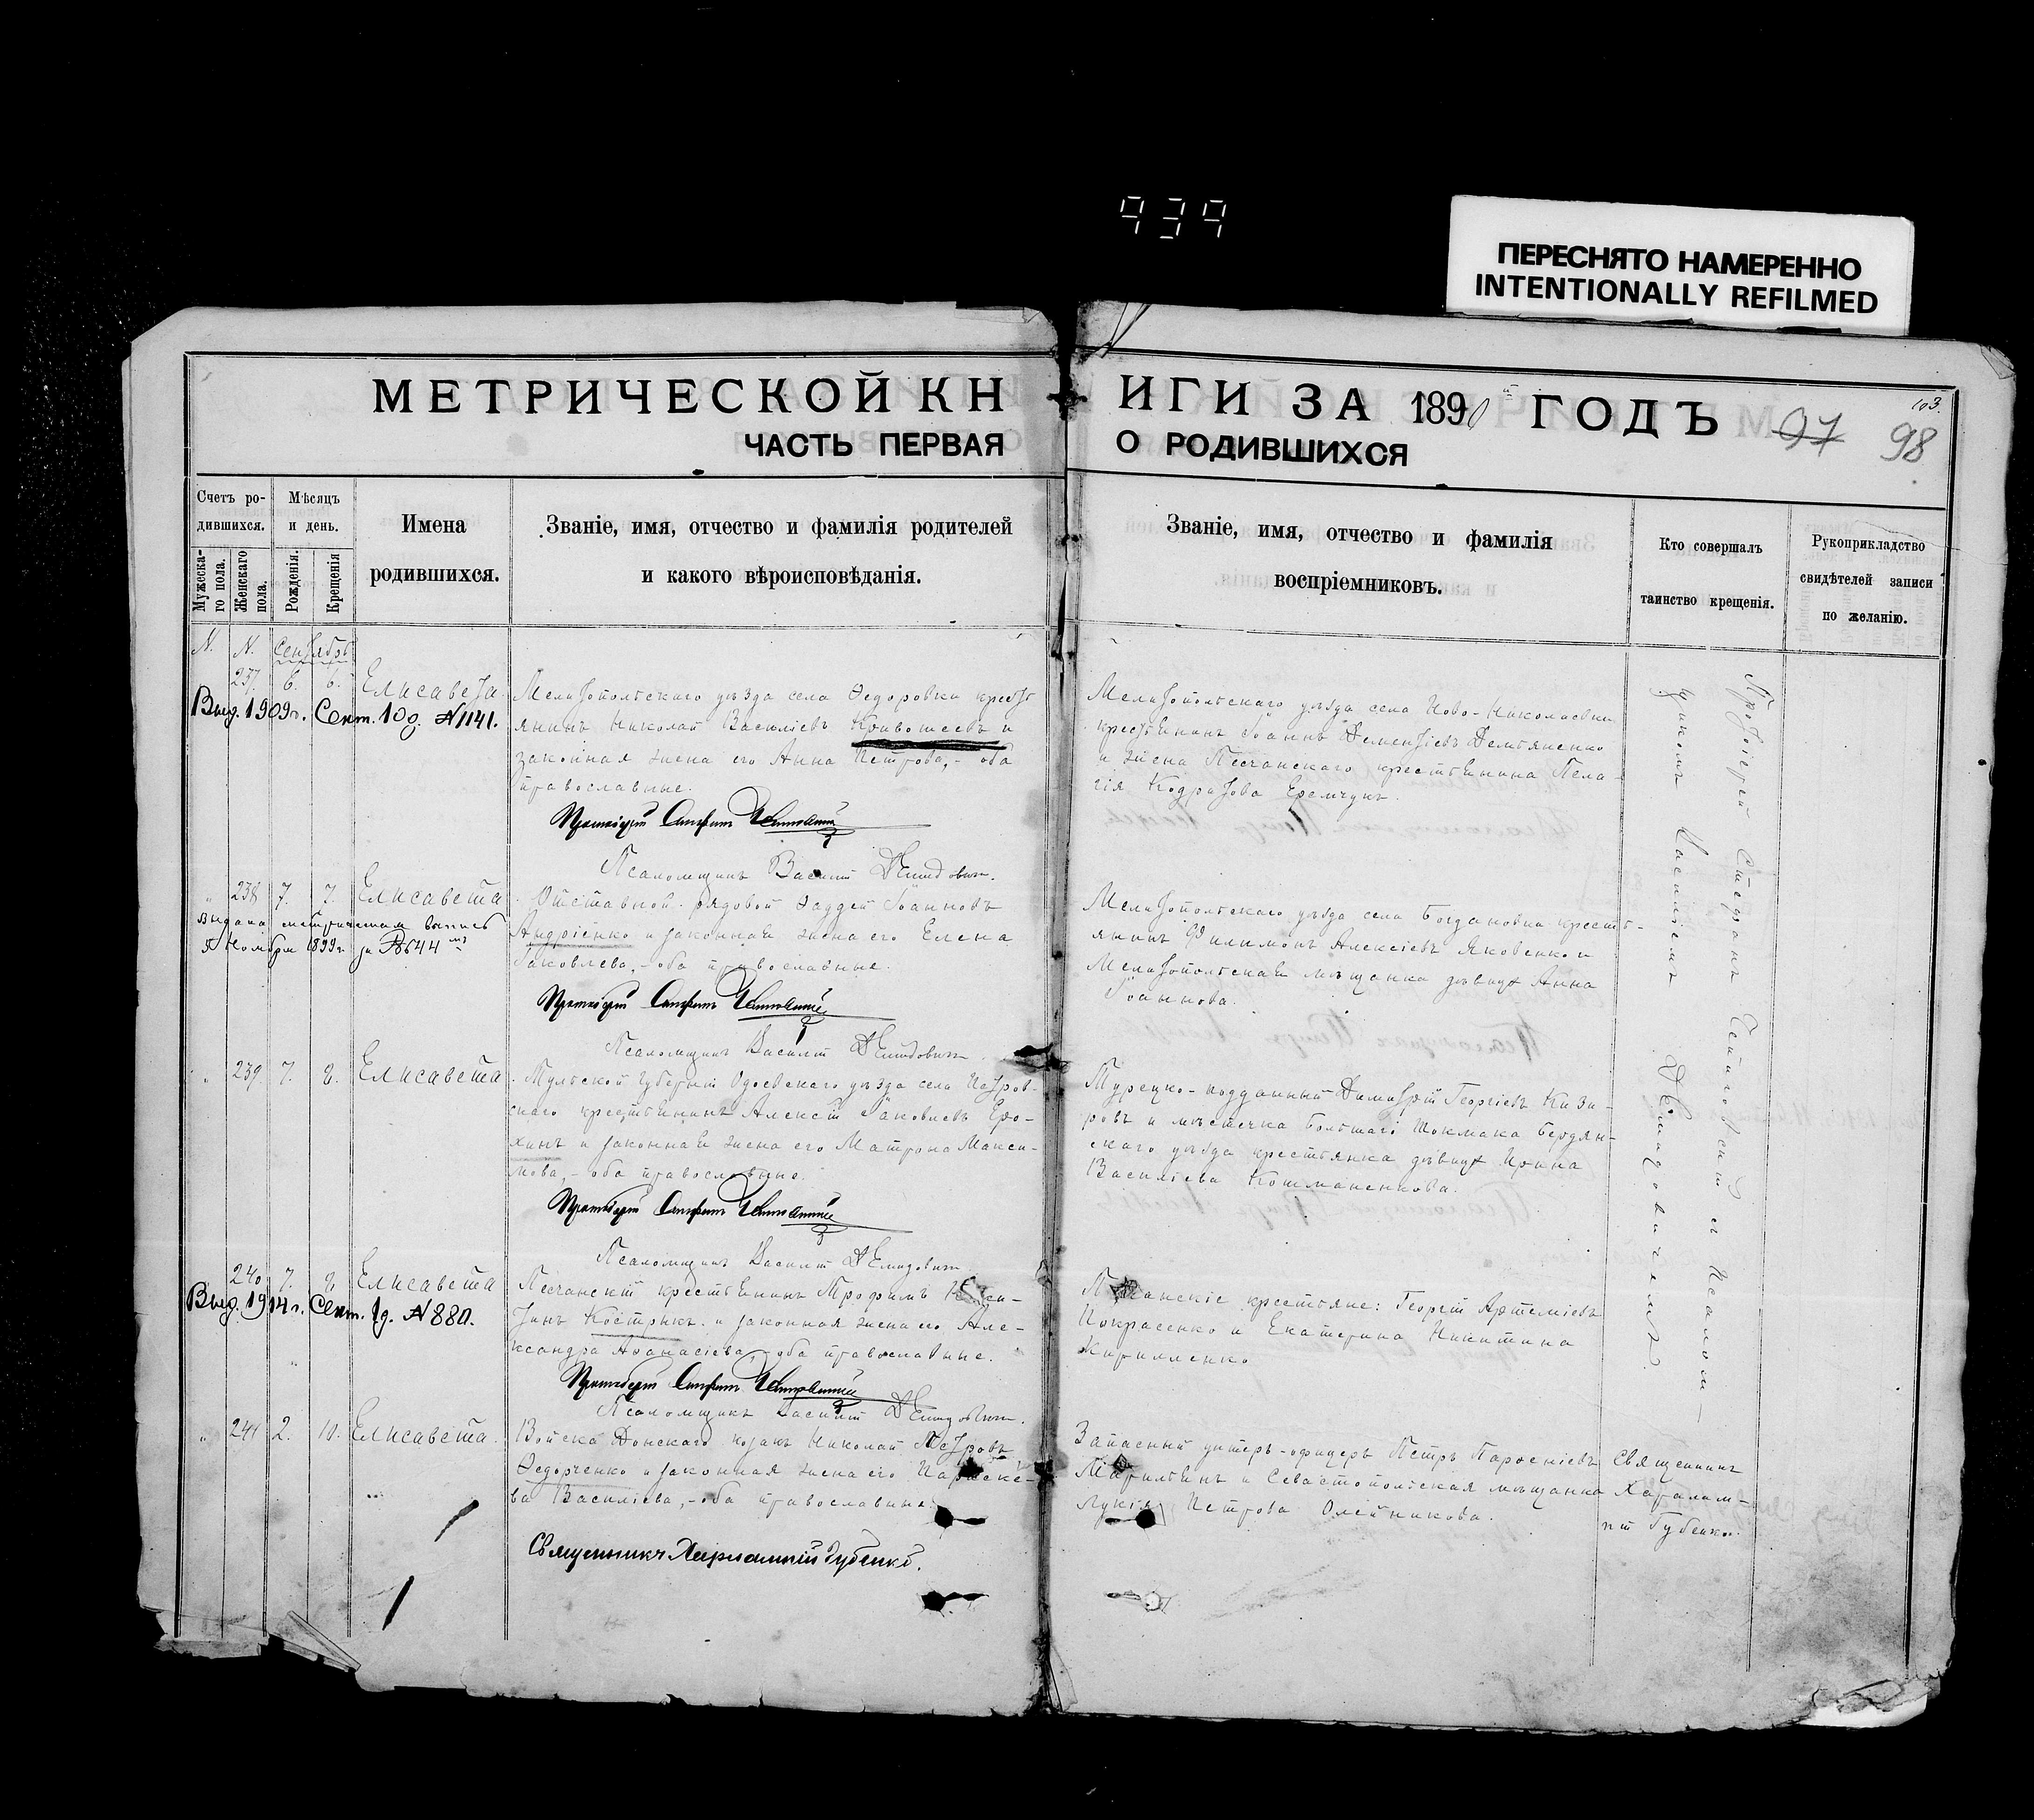 939
ПЕРЕСНЯТО НАМЕРЕННО
INTENTIONALLY REFILMED
МЕТРИЧЕСКОЙ КНИГИ ЗА 1890й ГОДЪ
103.
97 98
ЧАСТЬ ПЕРВАЯ О РОДИВШИХСЯ
Счетъ родившихся.
Мужескаго пола.
Женскаго пола.
Мѣсяцъ и день.
Рожденія.
Крещенія
Имена родившихся.
Званіе, имя, отчество и фамилія родителей
и какого вѣроисповѣданія.
Званіе, имя, отчество и фамилія
воспріемниковъ.
Кто совершалъ
таинство крещенія.
Рукоприкладство
свидѣтелей записи
по желанію.
N. N. Сентябрь
237 6. 6. Елисавета.
Выд. 1909г. Сент. 10д. №1141.
Мелитопольскаго уѣзда села Ѳедоровки крест
янинъ Николай Василіевъ Кривошеевъ и
законная жена его Анна Петрова,- оба
православные.
Протоіерей Стефанъ
Псаломщикъ Василій Демидовичъ.
Мелитопольскаго уѣзда села Ново-Николаевки
крестьянинъ Іоаннъ Дементіевъ Демьяненко
и жена Песчанскаго крестьянина Пела-
гія Кодратова Еремчукъ.
Протоіерей Стефанъ
съ Псалом-
щикомъ Василіемъ Демидовичемъ.
" 238 7. 7. Елисавета
Выдана метрическая выпись
Ноября 1899г. за №644мъ
Отставной рядовой Фаддей Іоанновъ
Андріенко и законная жена его Елена
Іаковлева,- оба православные.
Протоіерей Стефанъ
Псаломщикъ Василій Демидовичъ.
Мелитопольскаго уѣзда села Богдановки кресть-
янинъ Филимонъ Алексіевъ Яковенко и
Мелитопольская мѣщанка дѣвица Анна
Іоаннова.
" 239 7. 8. Елисавета
Тульской губерніи Одоевскаго уѣзда села Петров-
скаго крестьянинъ Алексій Іаковлевъ Еро-
хинъ и законная жена его Матрона Макси-
мова,- оба православные.
Протоіерей Стефанъ
Псаломщикъ Василій Демидовичъ
Турецко-подданный Димитрій Георгіевъ Кизи-
ровъ и мѣстечка Большаго Токмака Бердян-
скаго уѣзда крестьянка дѣвица Ирина
Василіева Кошманенкова.
240 7. 8. Елисавета
Выд. 1914г. Сент. 1д. №880.
Песчанскій крестьянинъ Трофимъ
Костр и законная жена его Але-
ксандра Аѳанасіева, оба православные.
Протоіерей Стефанъ
Псаломщикъ Василій Демидовичъ.
Песчанскіе крестьяне: Георгій Артеміевъ
Покрасенко и Екатерина Никитина
Кириленко
" 241 2. 10. Елисавета.
Войска Донскаго козакъ Николай Петровъ
Ѳедорченко и законная жена его Параске-
ва Василіева,- оба православные.
Священникъ Харлампій Губенко.
Запасный унтеръ-офицеръ Петръ Парѳеніевъ
и Севастопольская мѣщанка
Лукія Петрова Олейникова.
Священникъ
Харлам-
пій Губенко.